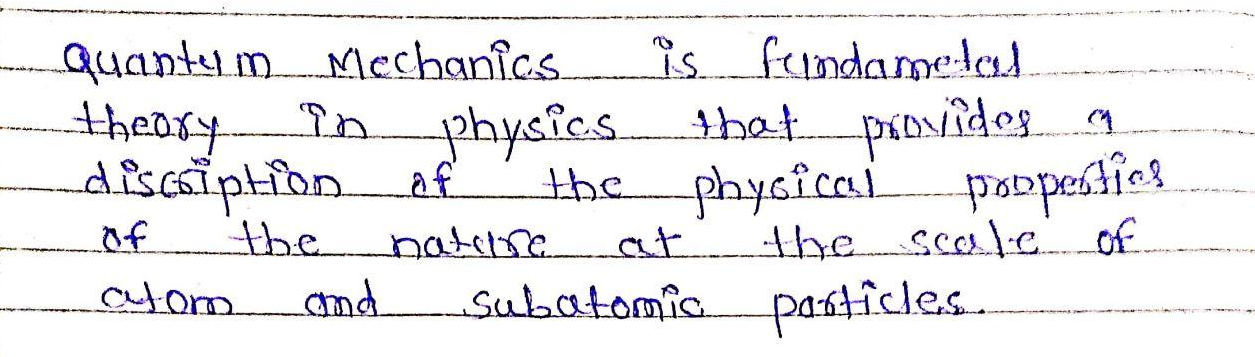 Quantum Mechanics is fundametal
theory in physics that provides a
discription of the physical properties
of the nature at the scale of
atom and subatomic particles.